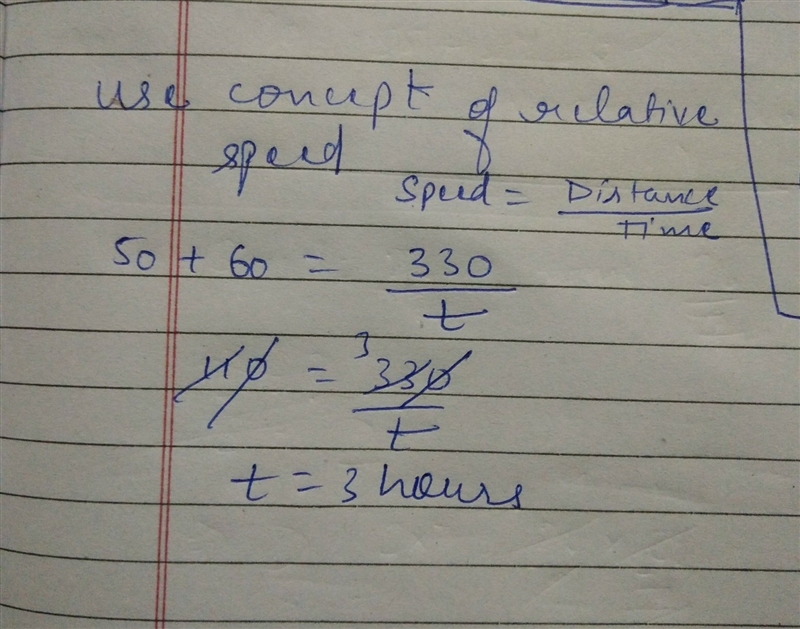 Use concept of relative
speed
Speed = Distance / Time
50 + 60 = 330 / t
110 = 3 330 / t
t = 3 hours